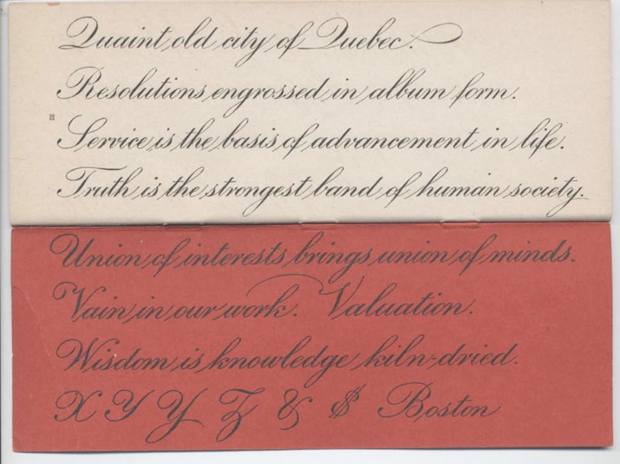 Quaint old city of Quebec.
Resolutions engrossed in album form.
Service is the basis of advancement in life.
Truth is the strongest band of human society.
Union of interests brings union of minds.
Vain in our work. Valuation.
Wisdom is knowledge kiln-dried.
X Y Y Z & $ Boston